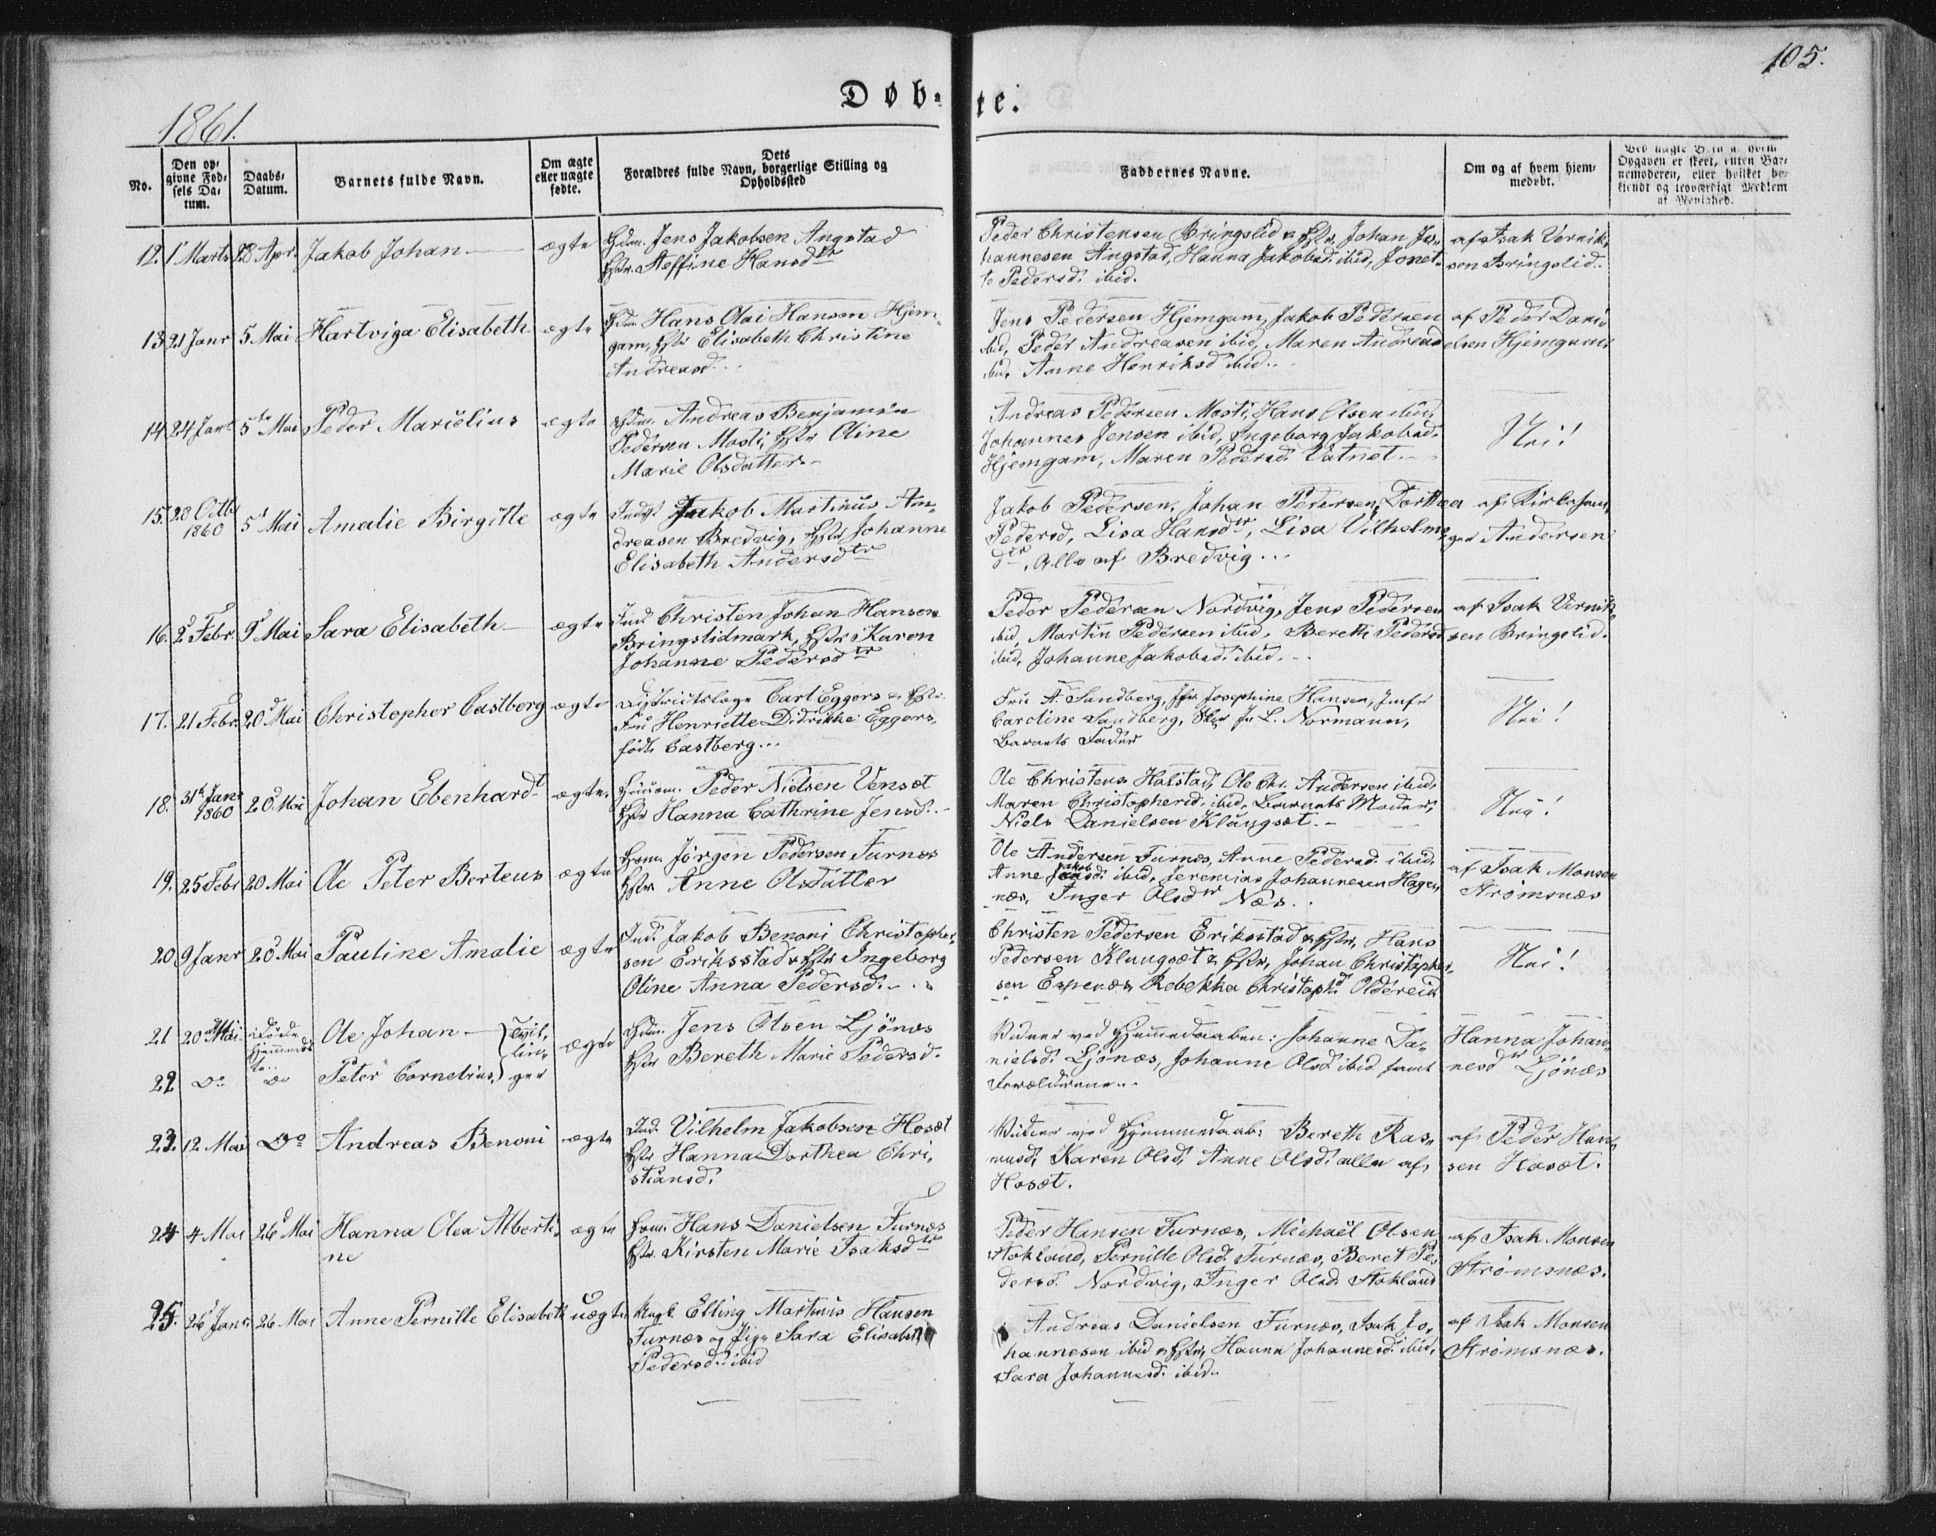 105.
Døb- te.
1861.
No.
Den op-
givne Fød-
sels Da-
tum.
Daabs-
Datum.
Barnets fulde Navn.
Om ægte
eller uægte
fødte.
Dets
Forældres fulde Navn, borgerlige Stilling og
Opholdssted
Faddernes Navne.
Om og af hvem hjem-
medøbt.
Ved uægte Børn af hvem
Opgaven er skeet, enten Bar-
nemoderen, eller hvilket be-
kjendt og troværdigt Medlem
af Menighed.
12. 1 Marts 28 Apr. Jakob Johan ægte
Gdm. Jens Jakobsen Angstad
Hstr. Steffine Hansdtr
Peder Christensen Bringslid & Hstr, Johan Jo-
hannesen Angstad, Hanna Jakobsd. ibid, Jonet-
te Pedersd. ibid.
af Isak Vernik-
sen Bringslid.
13. 21 Janr 5 Mai Hartviga Elisabeth ægte
Gdm. Hans Olai Hansen Hjem-
gam, Hstr Elisabeth Christine
Andreasd.
Jens Pedersen Hjemgam, Jakob Pedersen
ibid, Peder Andreasen ibid, Maren Andreasd
ibid. Anne Henriksd ibid.
af Peder Dani-
elsen Hjemgam
14. 24 Janr 5te Mai Peder Marielius ægte
Gdm. Andreas Benjamin
Pedersen Mosti, Hstr Oline
Marie Olsdatter
Andreas Pedersen Mosti, Hans Olsen ibid,
Johannes Jensen ibid, Ingeborg Jakobsd.
Hjemgam, Maren Pedersd. Vatnet.
Nei!
15. 28 Octbr
1860 5 Mai Amalie Birgitte ægte
Inds. Jakob Martinus An-
dreasen Bredvig, Hstr Johanne
Elisabeth Andersdtr
Jakob Pedersen, Johan Pedersen, Dorthea
Pedersd, Lisa Hansdtr, Lisa Vilhelms-
dtr, Alle af Bredvig...
af Kirkesan-
ger Andersen
16. 2 Febr. 9 Mai Sara Elisabeth ægte
Inds. Christen Johan Hansen
Bringslidmark, Hstr Karen
Johanne Pedersdtr
Peder Pedersen Nordvig, Jens Pedersen
ibid, Martin Pedersen ibid, Bereth Pedersd
ibid, Johanne Jakobsd. ibid.
af Isak Vernik-
sen Bringslid.
17. 21 Febr. 20 Mai Christopher Castberg ægte
Districtslæge Carl Eggers & Hstr.
Fru Henriette Didrikke Eggers,
født Castberg...
Fru A. Sandberg, Jfr Josephine Hansen, Jmfr
Caroline Sandberg, Hr L. Normann,
Barnets Fader
Nei!
18. 31te Janr
1860 20 Mai Johan Ebenhardt ægte.
Peder Nielsen Venset
Hstr Hanna Cathrine Jensd.
Ole Christens Halstad, Ole Chr. Andersen ibid,
Maren Christophersd. ibid, Barnets Moder,
Niels Danielsen Klungset.
Nei!
19. 25 Febr 20 Mai Ole Peter Berteus ægte
Jörgen Pedersen Furnes
Hstr Anne Olsdatter
Ole Andersen Furnæs, Anne Pedersd. ibid,
Anne Jakobsd. ibid, Jeremias Johannesen Hagen-
næs, Inger Olsdtr Næs.
af Isak Monsen
Strømsnæs
20 9 Janr 20 Mai Pauline Amalie ægte
Inds. Jakob Benoni Christopher-
sen Eriksstad & Hstr Ingeborg
Oline Anna Pedersd.
Christen Pedersen Eriksstad & Hstr, Hans
Pedersen Klungset & Hstr, Johan Christopher-
sen Espenæs, Rebekka Christophd. Oldereid
Nei!
21 20 Mai Døde
Hjemmedöb-
te Ole Johan Tvil-
lin-
ger ægte
22 Do Do Peter Cornelius
Gdm. Jens Olsen Ljönes
Hstr Bereth Marie Pedersd.
Vidner ved Hjemmedaaben: Johanne Da-
nielsd. Ljönæs, Johanne Olsd ibid samt
Forældrene.
Hanna Johan-
nesdtr Ljönæs
23. 12. Mai Do Andreas Benoni ægte
Inds. Vilhelm Jakobsen Hoset
Hstr Hanna Dorthea Chri-
stiansd.
Vidner ved Hjemmedaab: Bereth Ras-
musd. Karen Olsd, Anne Olsd. alle af
Hoset.
af Peder Han-
sen Hoset.
24 4 Mai 26 Mai Hanna Olea Alberti-
ne ægte
Hans Danielsen Furnes
Hstr. Kirsten Marie Isaksdtr
Peder Hansen Furnæs, Michael Olsen
Stokland, Pernille Olsd. Furnæs, Beret Pe-
dersd. Nordvig, Inger Olsd. Stokland
af Isak Monsen
Strømsnæs.
25. 26 Janr. 26 Mai Anne Pernille Elisabeth uægte
Ungk. Elling Martinus Hansen
Furnæs og Pige Sara Elisabeth
Pedersd. ibid
Andreas Danielsen Furnæs, Isak Jo-
hannesen ibid & Hstr, Hanna Johannesd. ibid,
Sara Johannesd. ibid.
af Isak Monsen
Strømsnæs.